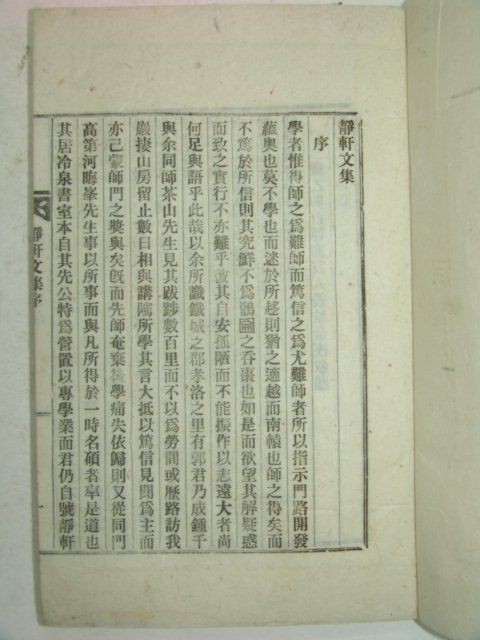 靜軒文集
序
學者惟得師之爲難師而篤信之爲尤難師者所以指示門路開發
蘊奧也莫不學也而迷於所趍則猶之適越而南轅也師之得矣而
不篤於所信則其究鮮不爲鶻圇之呑棗也如是而欲望其解疑惑
而致之實行不亦難乎彼其自安孤陋而不能振作以志遠大者尚
何足與語乎此哉以余所識鐵城之郡孝洛之里有郭君乃成鍾千
與余同師茶山先生見其跋踄數百里而不以爲勞間或歷路訪我
巖捿山房留止數日相與講隲所學其言大抵以篤信見聞爲主而
亦已蒙師門之獎與矣旣而先師奄棄後學痛失依歸則又從同門
高第河晦峯先生事以所事而與凡所得於一時名碩者率是道也
其居冷泉書室本自其先公特爲營置以專學業而君仍自號靜軒
靜軒文集序
一